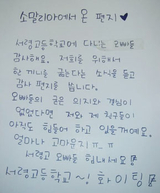 소말리아에서 온 편지 ♡
서령고등학교에 다니는 오빠들
감사해요. 저희를 위해서
한 끼니를 굶는다는 소식을 듣고
감사 편지를 씁니다.
오빠들의 굳은 의지와 관심이
없었다면 저와 제 친구들이
아직도 힘들어 하고 있을꺼예요.
얼마나 고마운지 ㅠㅠ
서령고 오빠들 힘내세요
서령고등학교~! 화이팅